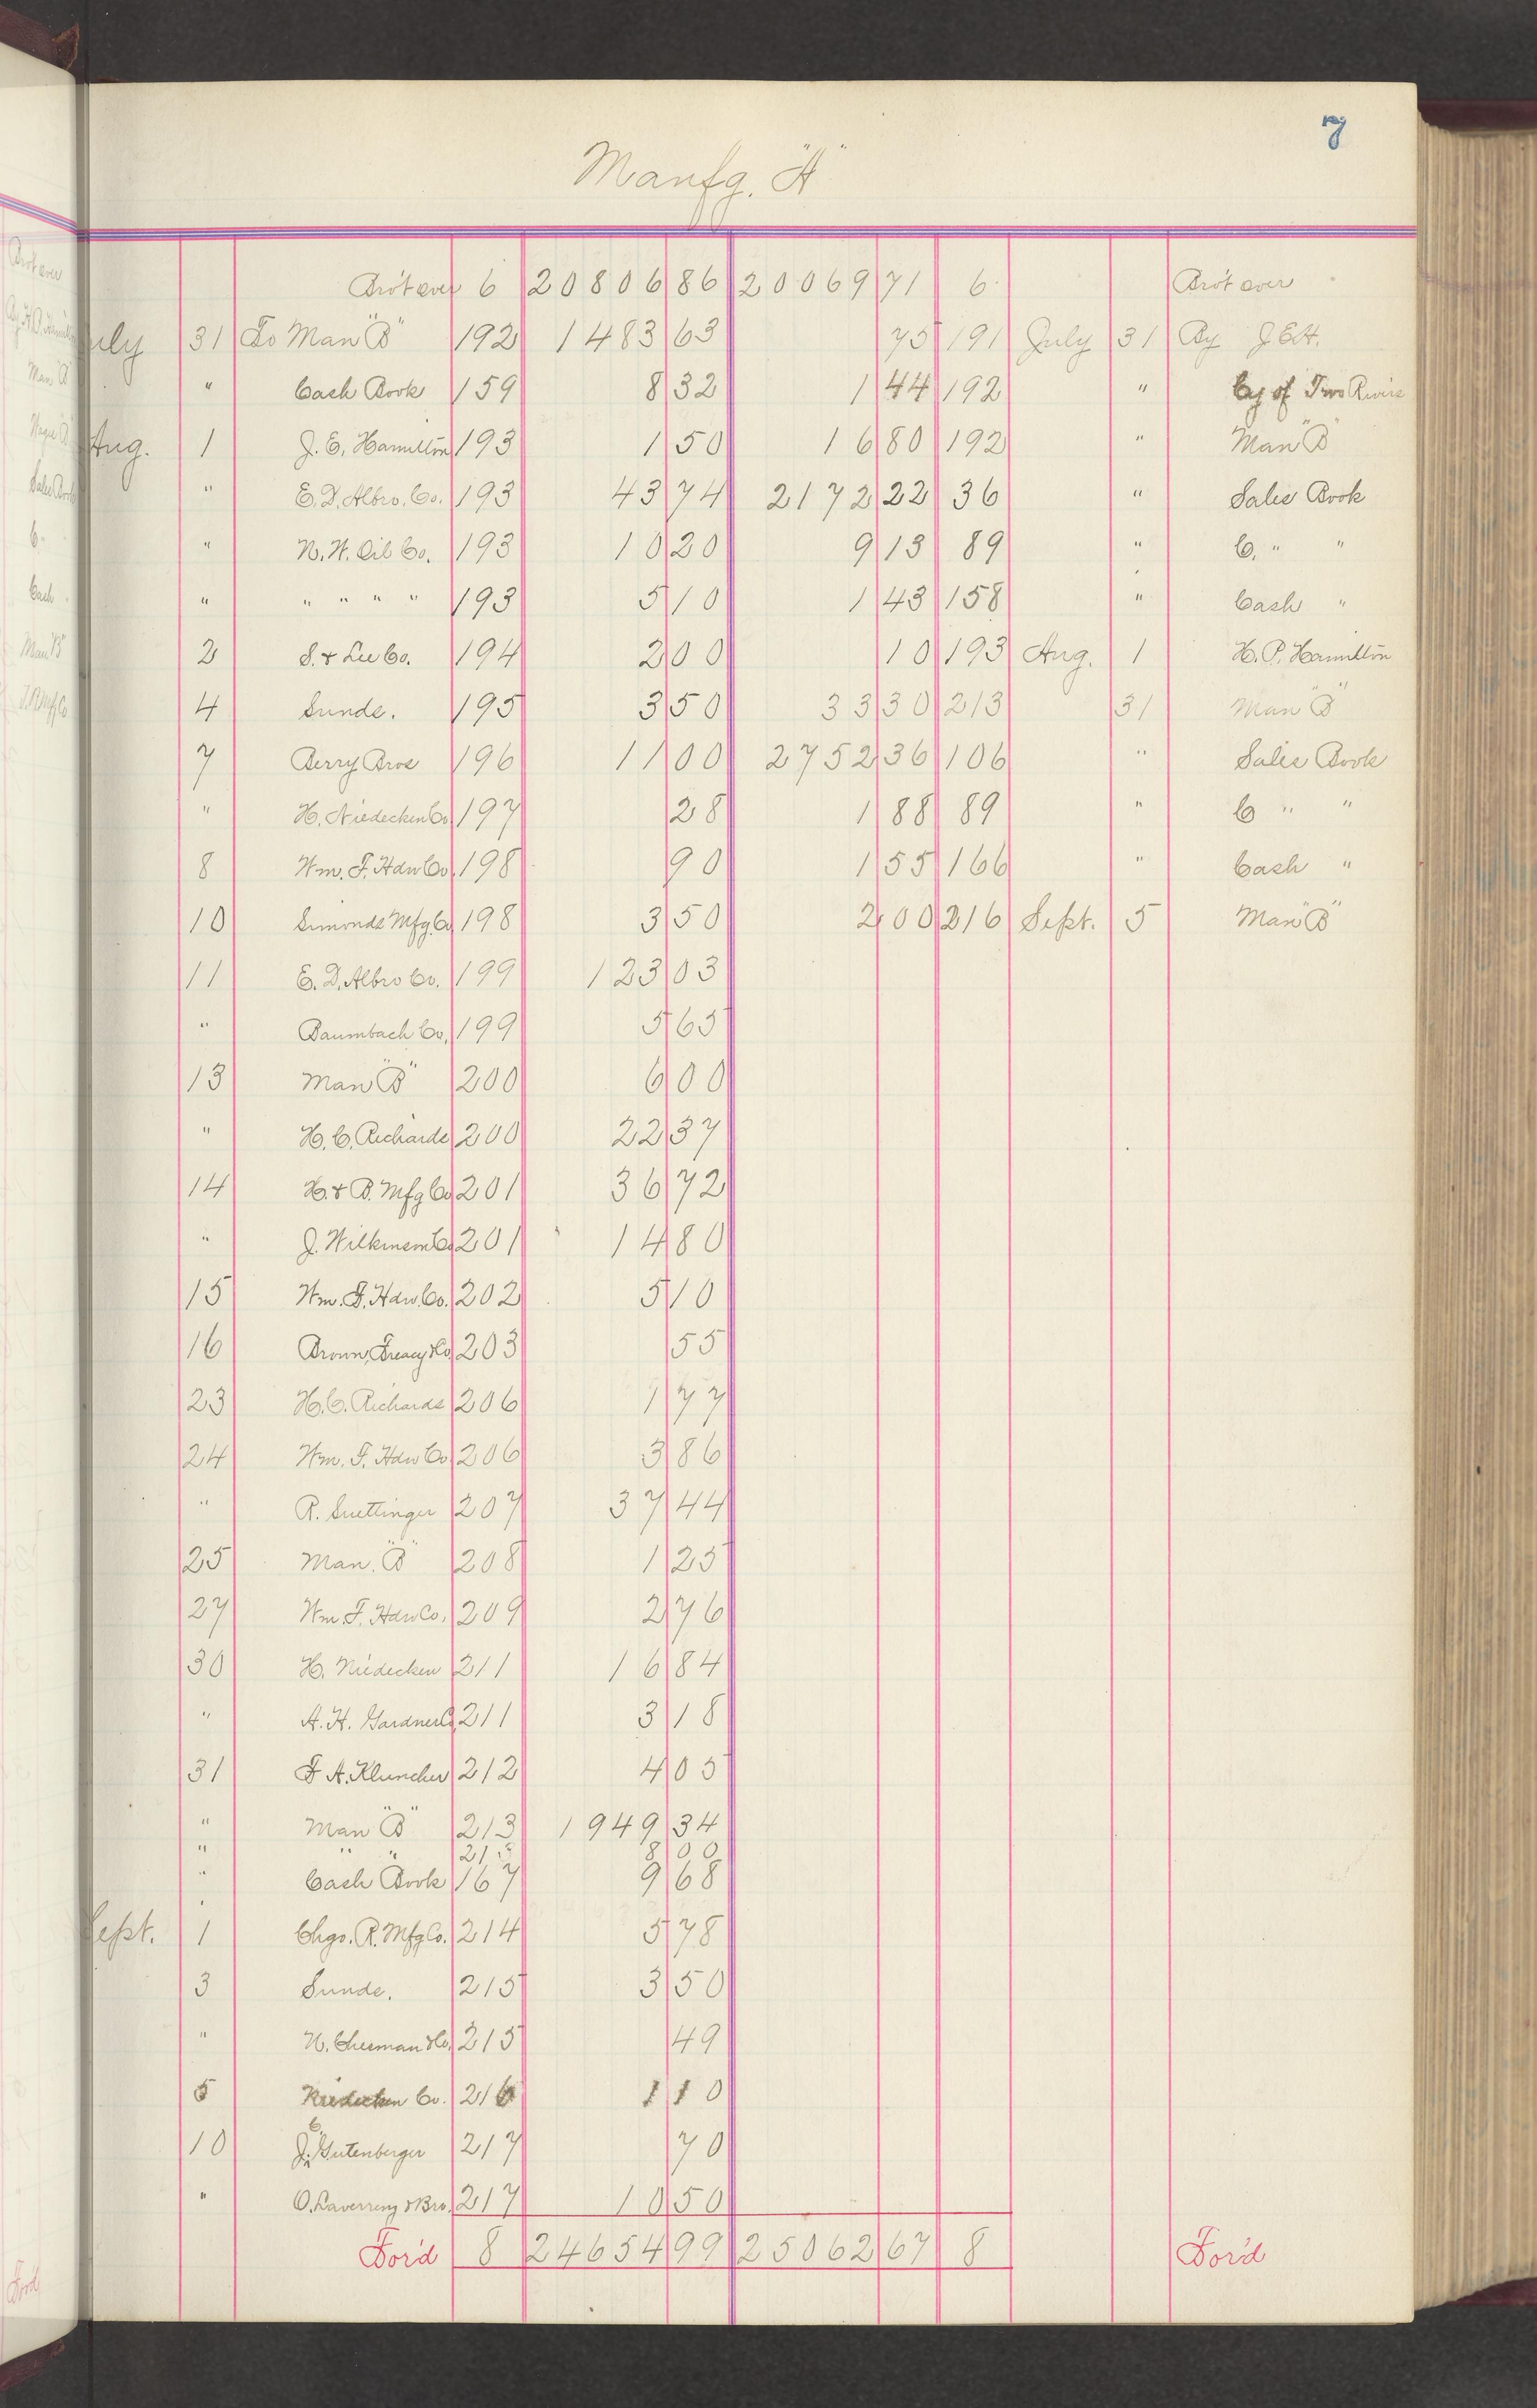 7
Manfg. "A"
Bro't over 6 20806 86 20069 71 6 Bro't over
July 31 To Man "B" 192 1483 63 75 191 July 31 By J.E.H.
" Cash Book 159 8 32 1 44 192 " Cy of Two Rivers
Aug. 1 J. E. Hamilton 193 1 50 16 80 192 " Man "B"
" E. D. Albro. Co. 193 43 74 2172 22 36 " Sales Book
" N. W. Oil Co. 193 10 20 9 13 89 " C. " "
" " " " " 193 5 10 1 43 158 " Cash "
2 S. & Lee Co. 194 2 00 10 193 Aug. 1 H. P. Hamilton
4 Sunde. 195 3 50 33 30 213 31 Man "B"
7 Berry Bros 196 11 00 2752 36 106 " Sales Book
" H. Niedecken Co 197 28 1 88 89 " C " "
8 Wm. F. Hdw Co. 198 90 1 55 166 " Cash "
10 Simonds Mfg. Co 198 3 50 2 00 216 Sept. 5 Man "B"
11 E. D. Albro Co. 199 123 03
" Baumbach Co. 199 5 65
13 Man "B" 200 6 00
" H. C. Richards 200 22 37
14 H. & B. Mfg Co 201 36 72
" J. Wilkinson Co 201 14 80
15 Wm. F. Hdw. Co. 202 5 10
16 Brown, Treacy & Co 203 55
23 H. C. Richards 206 1 77
24 Wm. F. Hdw Co 206 3 86
" R. Suettinger 207 37 44
25 Man. "B" 208 1 25
27 Wm. F. Hdw Co. 209 2 76
30 H. Niedecken 211 16 84
" A. H. Gardner Co. 211 3 18
31 F A. Kluncher 212 4 05
" Man "B" 213 1949 34
" " " 8 00
" Cash Book 167 9 68
Sept. 1 Chgo. R. Mfg Co. 214 5 78
3 Sunde. 215 3 50
" N. Chesman & Co. 215 49
5 Niedecken Co. 216 1 10
10 J. C. Gutenberger 217 70
" O. Laverrenz & Bro. 217 10 50
For'd 8 24654 99 25062 67 8 For'd